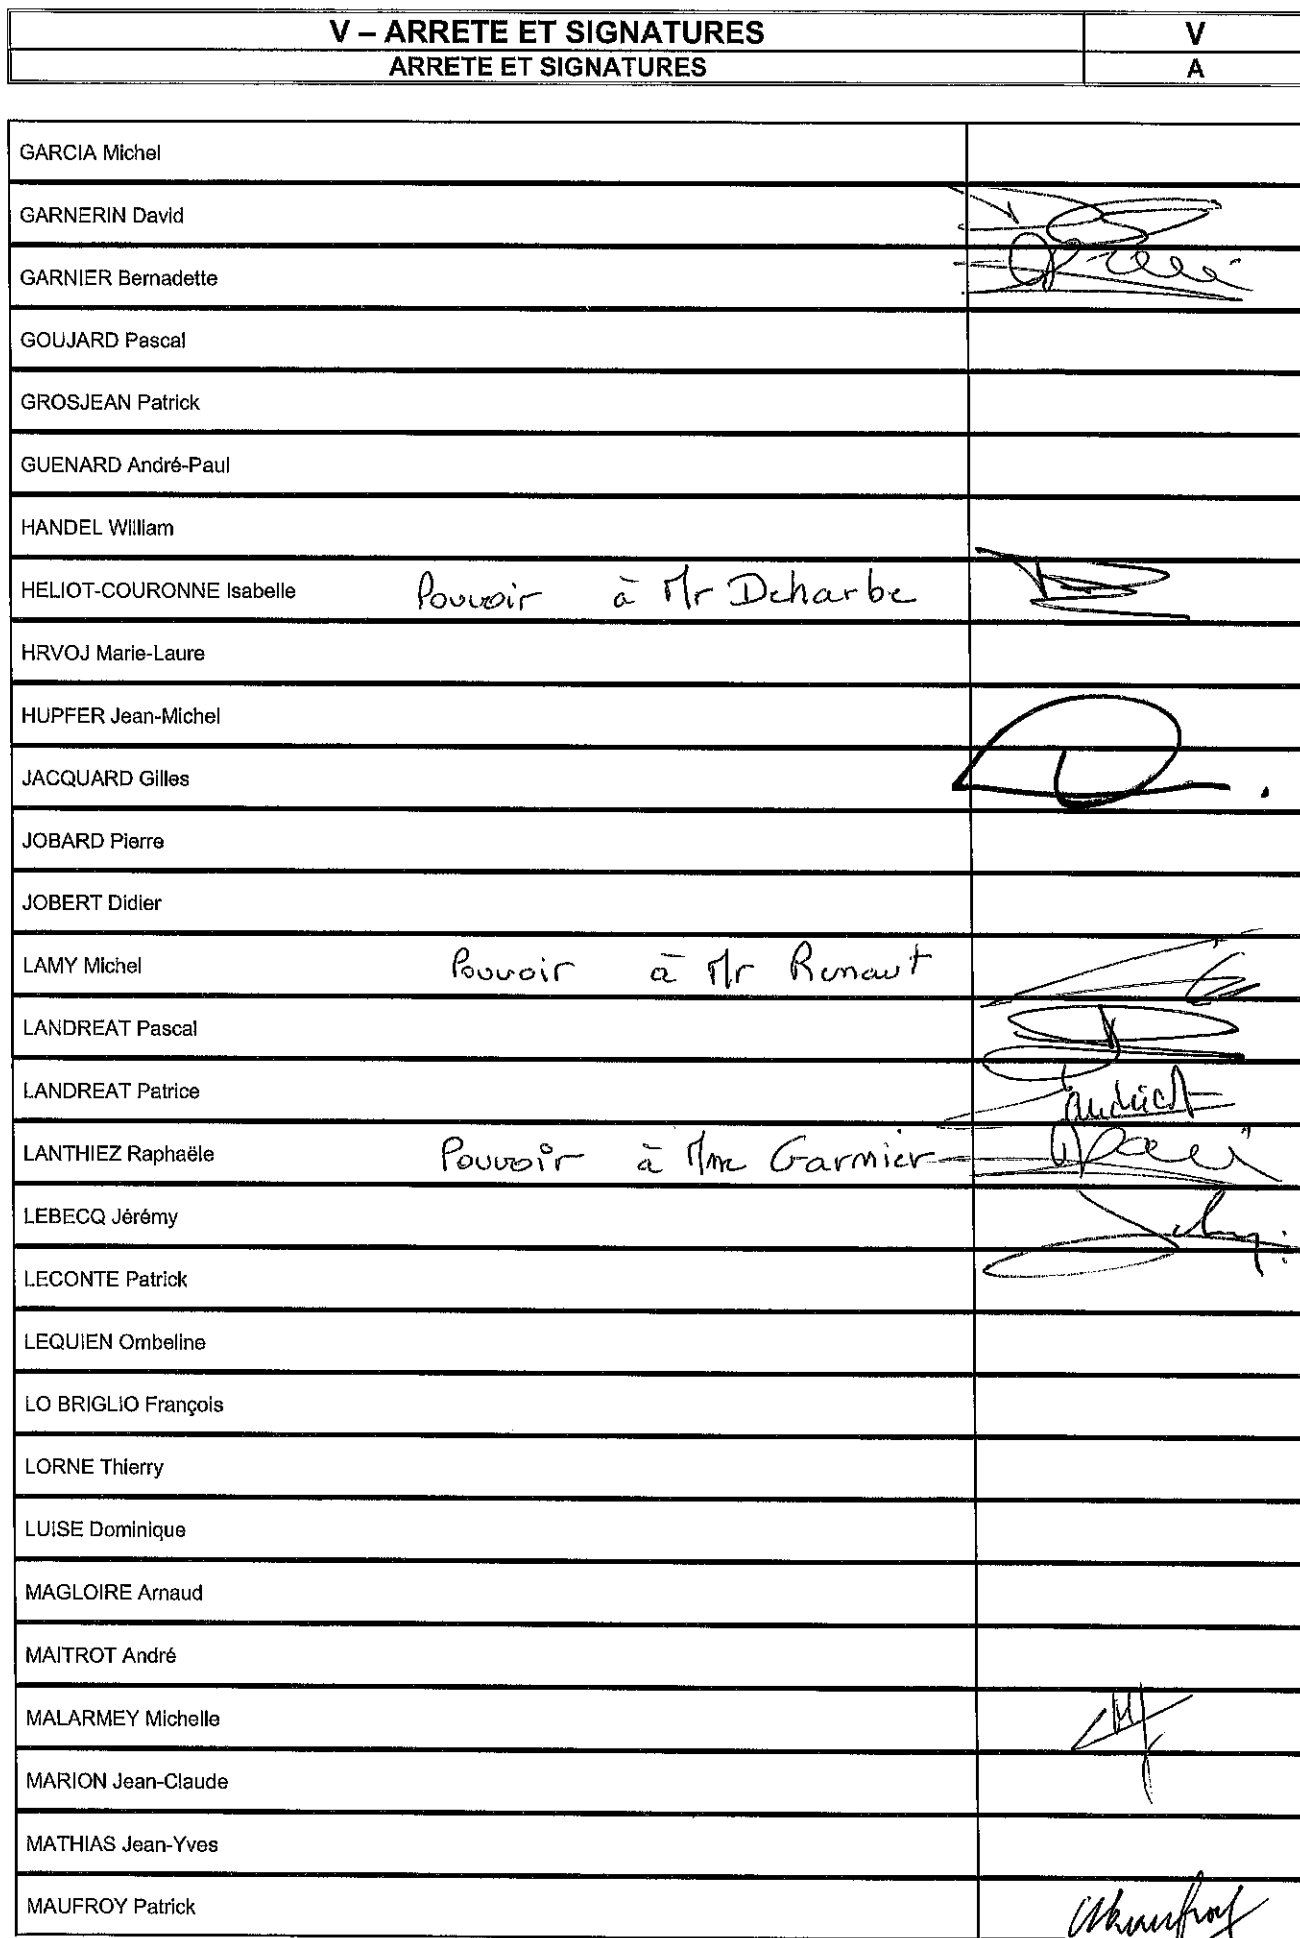 V – ARRETE ET SIGNATURES V
ARRETE ET SIGNATURES A
GARCIA Michel
GARNERIN David
GARNIER Bernadette
GOUJARD Pascal
GROSJEAN Patrick
GUENARD André-Paul
HANDEL William
HELIOT-COURONNE Isabelle Pouvoir à Mr Deharbe
HRVOJ Marie-Laure
HUPFER Jean-Michel
JACQUARD Gilles
JOBARD Pierre
JOBERT Didier
LAMY Michel Pouvoir à Mr Renaut
LANDREAT Pascal
LANDREAT Patrice
LANTHIEZ Raphaële Pouvoir à Mme Garnier
LEBECQ Jérémy
LECONTE Patrick
LEQUIEN Ombeline
LO BRIGLIO François
LORNE Thierry
LUISE Dominique
MAGLOIRE Arnaud
MAITROT André
MALARMEY Michelle
MARION Jean-Claude
MATHIAS Jean-Yves
MAUFROY Patrick